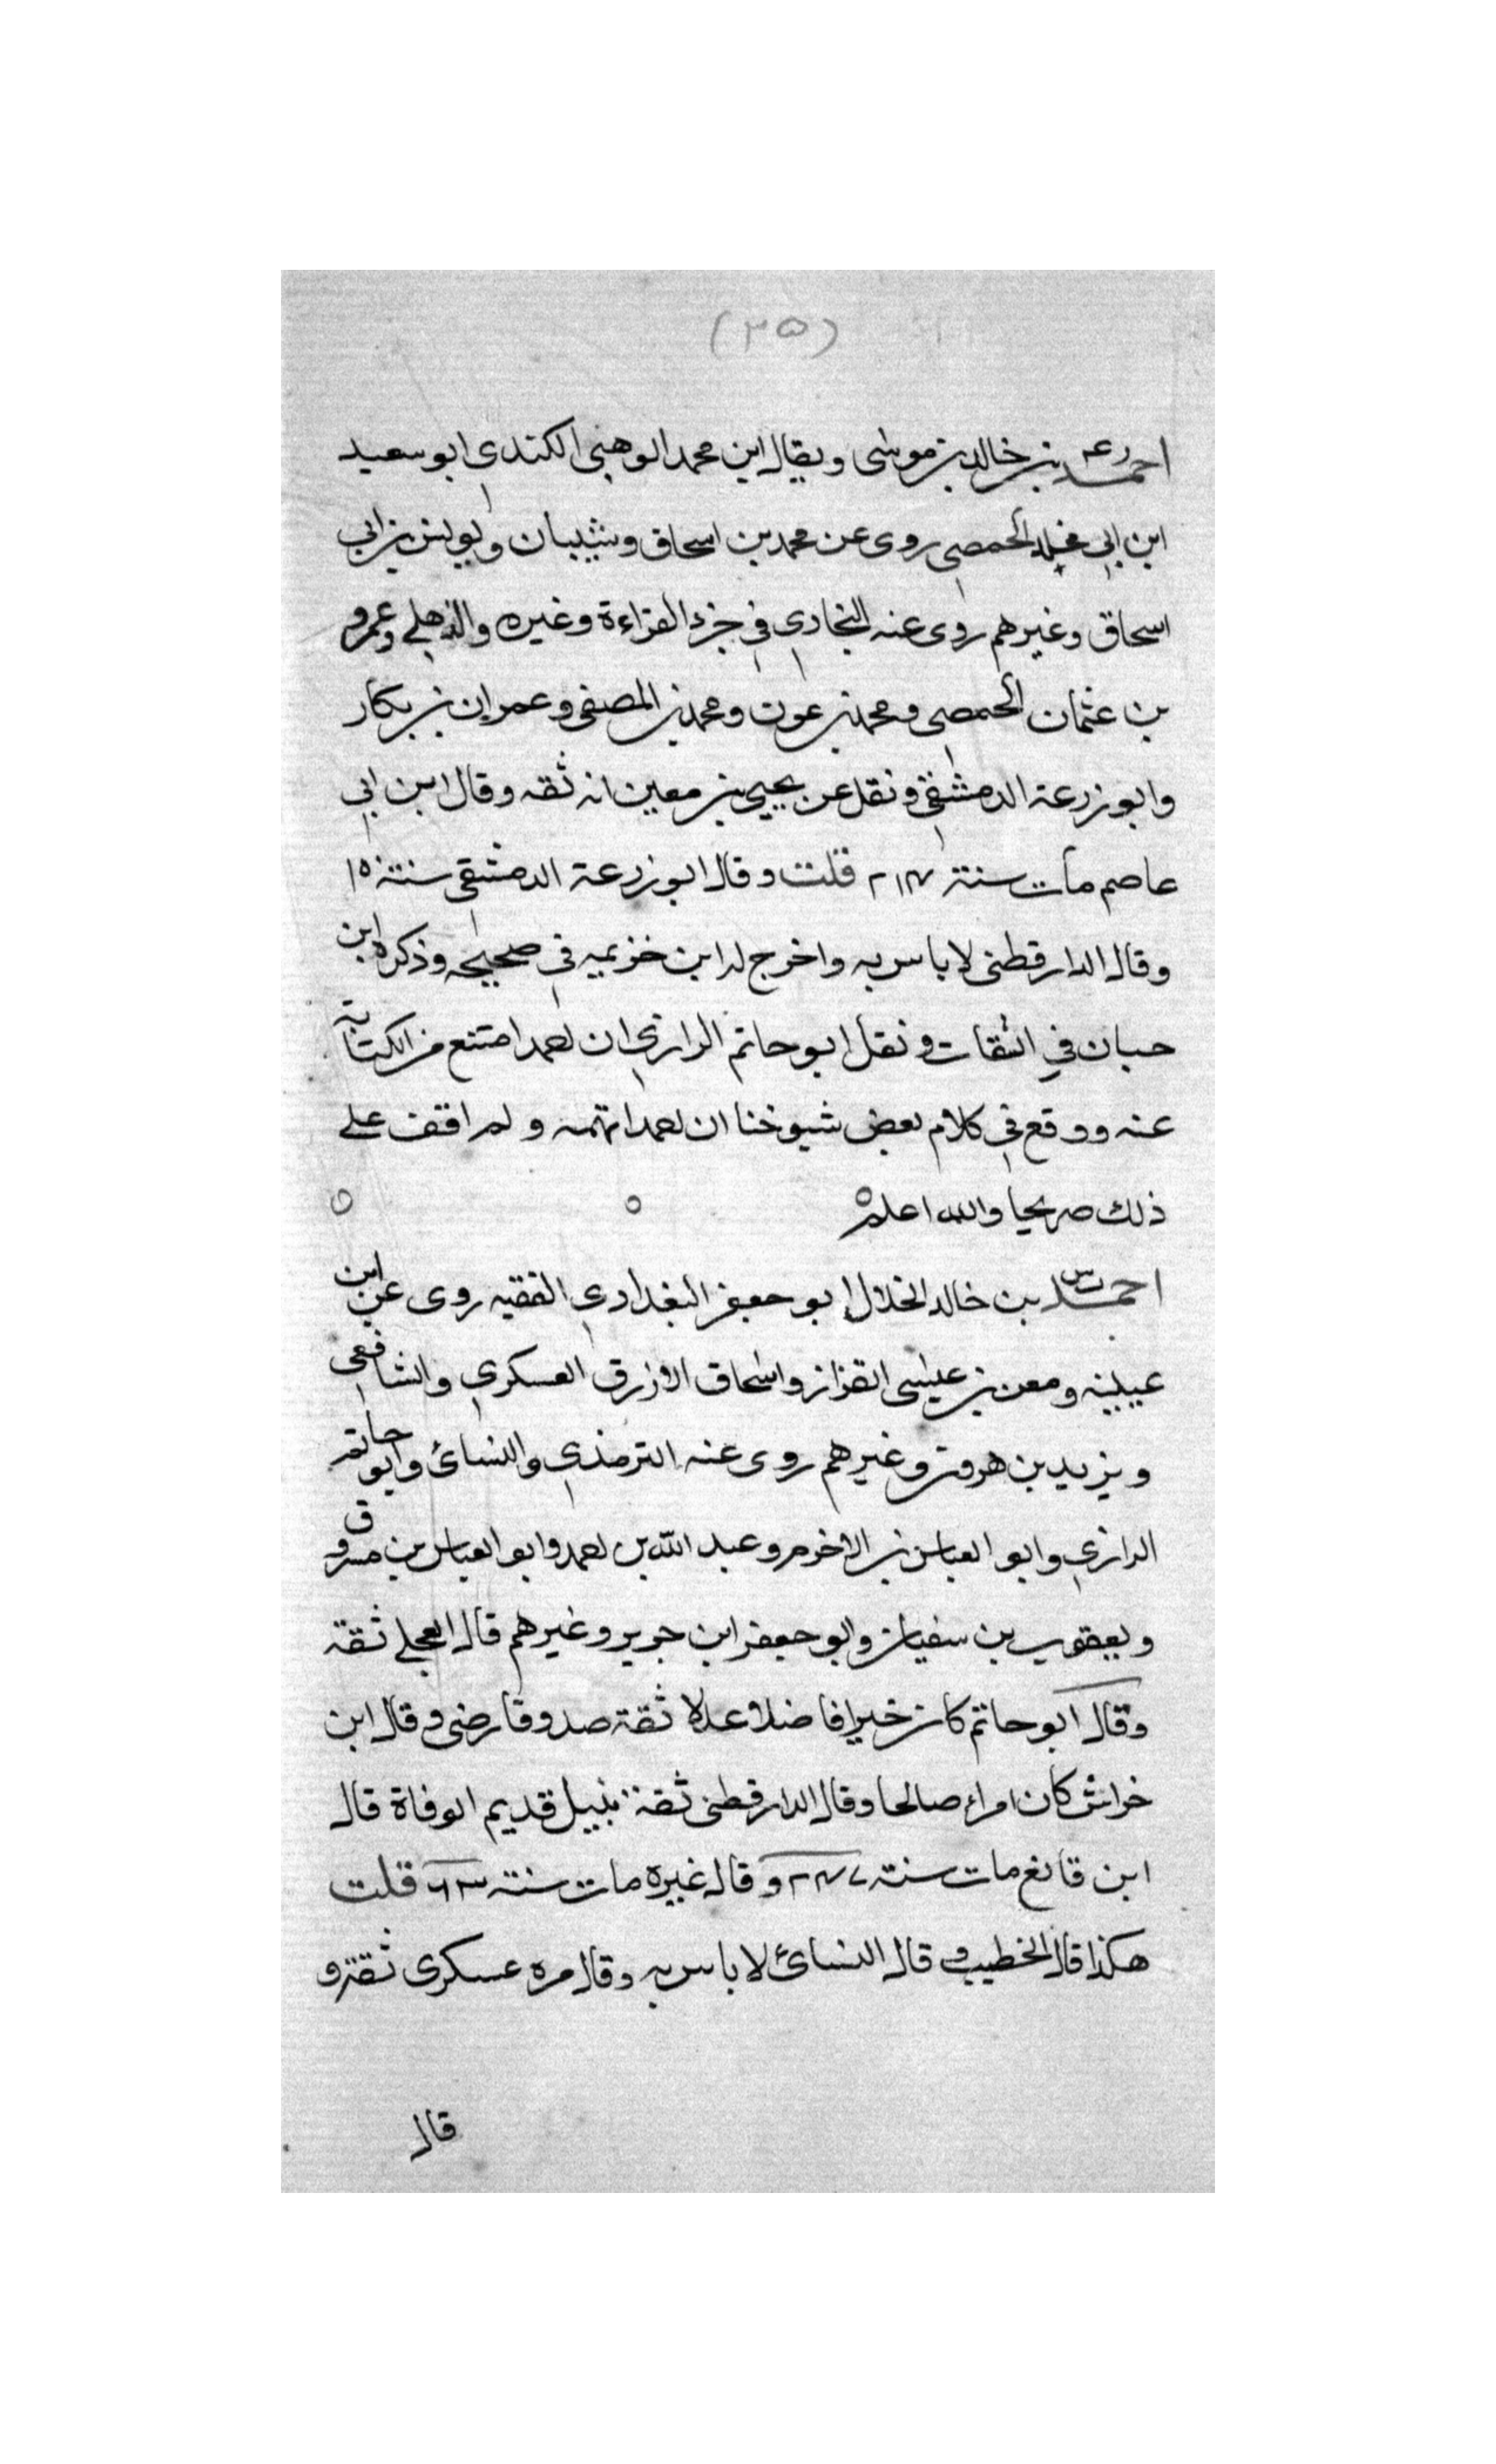 (٣٥)
احمد رعـ بن خالد بن موسى ويقال ابن محمد الوهبي الكندي ابو سعيد
ابن ابي مخلد الحمصي روى عن محمد بن اسحاق وشيبان ويونس بن ابي
اسحاق وغيرهم روى عنه البخاري في جزء القراءة وغيره والذهلي وعمرو
بن عثمان الحمصي ومحمد بن عون ومحمد بن المصفى وعمران بن بكار
وابو زرعة الدمشقي ونقل عن يحيى بن معين انه ثقه وقال ابن ابي
عاصم مات سنة ٢١٤ قلت وقال ابو زرعة الدمشقي سنة ١٥
وقال الدارقطني لا باس به واخرج له ابن خزيمه في صحيحه وذكره ابن
حبان في الثقات ونقل ابو حاتم الرازي ان احمد امتنع من الكتابة
عنه ووقع في كلام بعض شيوخنا ان احمد اتهمه ولم اقف على
ذلك صريحا والله اعلم ٥ ٥ ٥
احمد ت س بن خالد الخلال ابو جعفر البغدادي الفقيه روى عن ابن
عيينه ومعن بن عيسى القزاز واسحاق الازرق العسكري والشافعي
ويزيد بن هرون وغيرهم روى عنه الترمذي والنسائ وابو حاتم
الرازي وابو العباس بن الاخرم وعبد الله بن احمد وابو العباس بن مسروق
ويعقوب بن سفيان وابو جعفر ابن جرير وغيرهم قال العجلي ثقة
وقال ابو حاتم كان خيرا فاضلا عدلا ثقة صدوقا رضى وقال ابن
خراش كان امراء صالحا وقال الدارقطني ثقة نبيل قديم الوفاة قال
ابن قانع مات سنة ٢٤٧ وقال غيره مات سنة قلت
هكذا قال الخطيب وقال النسائ لا باس به وقال مره عسكرى ثقة و
قال